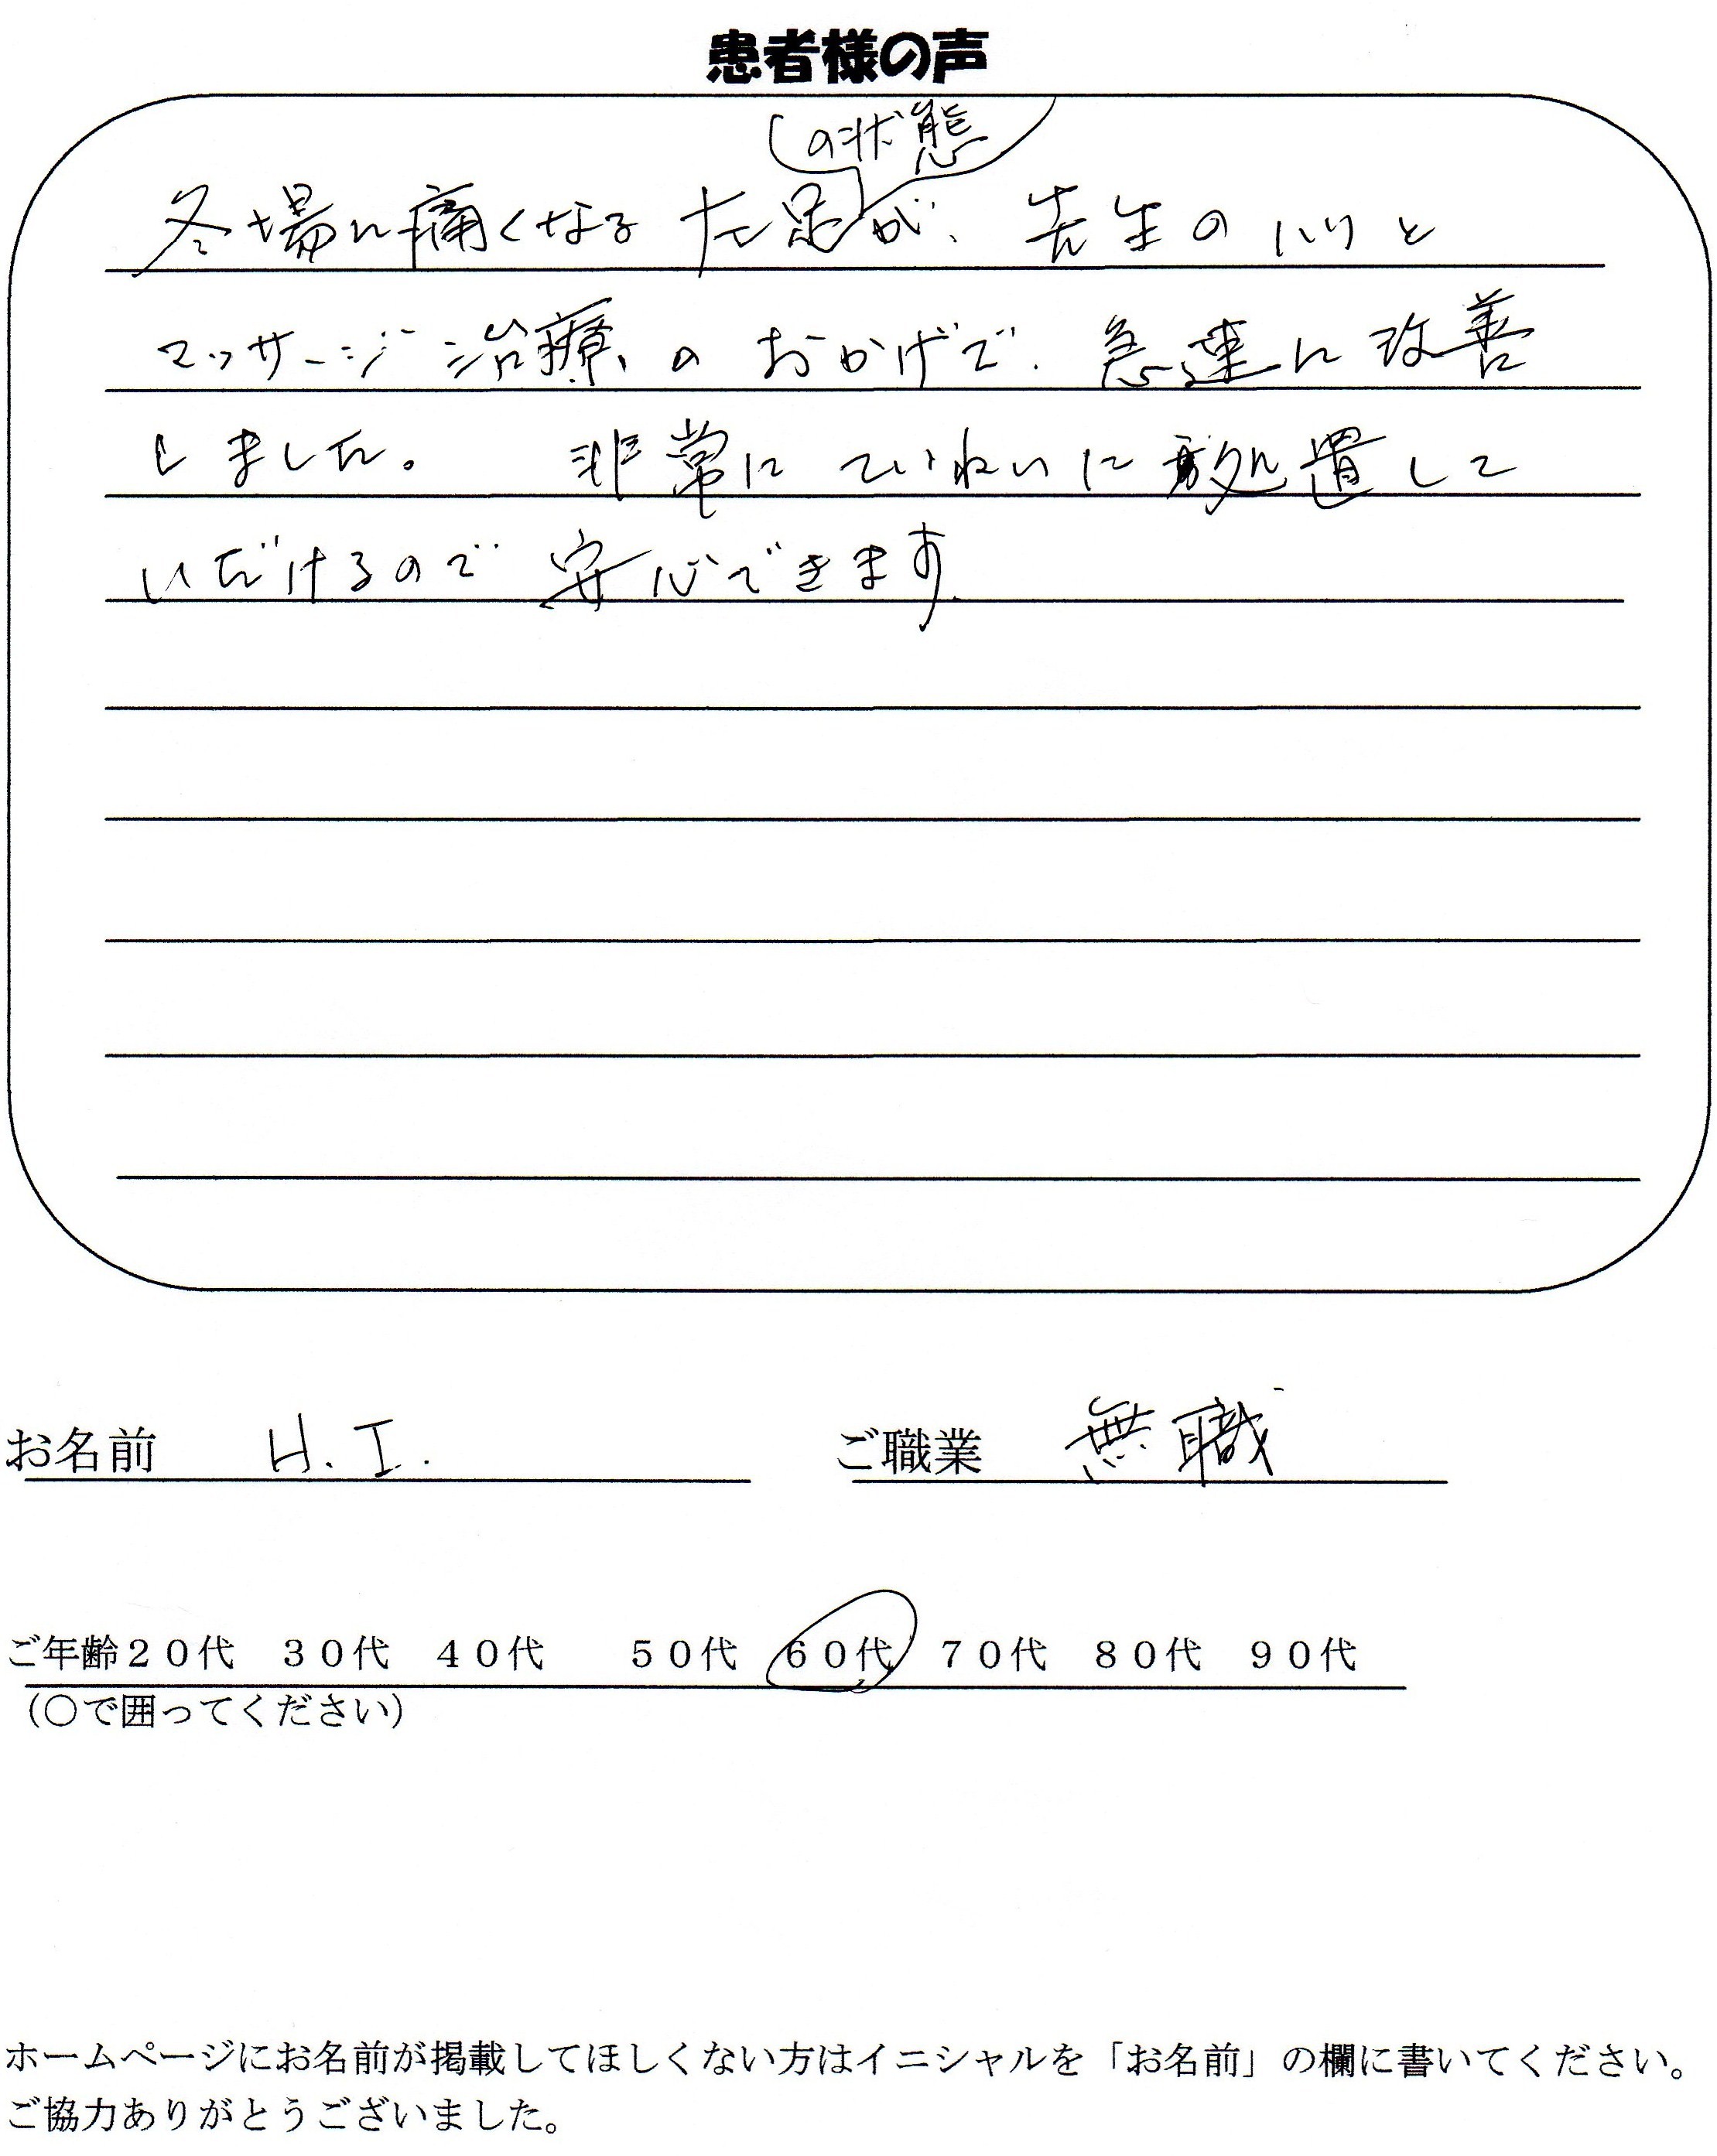 患者様の声
の状態
冬場に痛くなる左足が、先生のハリと
マッサージ治療のおかげで、急速に改善
しました。 非常にていねいに処置して
いただけるので安心できます。
お名前 H.I. ご職業 無職
ご年齢20代 30代 40代 50代 60代 70代 80代 90代
（○で囲ってください）
ホームページにお名前が掲載してほしくない方はイニシャルを「お名前」の欄に書いてください。
ご協力ありがとうございました。